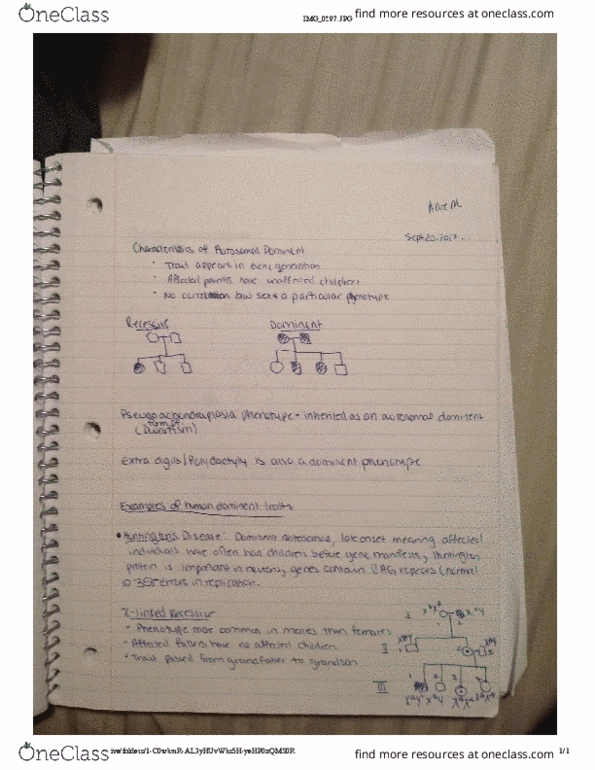 OneClass
IMG_0597.JPG
find more resources at oneclass.com
Allie M
Sept 20, 2017.
Characteristics of Autosomal Dominant
· Trait appears in every generation
· Affected parents have unaffected children
· No correlation btw sex & a particular phenotype
Recessive Dominant
Pseudoachondraplasia phenotype - inherited as an autosomal dominant
(form of Dwarfism)
Extra digits/Polydactyly is also a dominant phenotype
Examples of human dominant traits
• Huntingtons Disease: Dominant autosomal, late onset meaning affected
individuals have often had children before gene manifests, Huntington
protein is important in neurons, genes contain CAG repeats (normal
errors in replication.
X-linked Recessive
· Phenotype more common in males than females
· Affected fathers have no affected children
· Trait passed from grandfather to grandson
I
1 2
II
1 2 3
III
1 2 3 4
OneClass
find more resources at oneclass.com
1/1